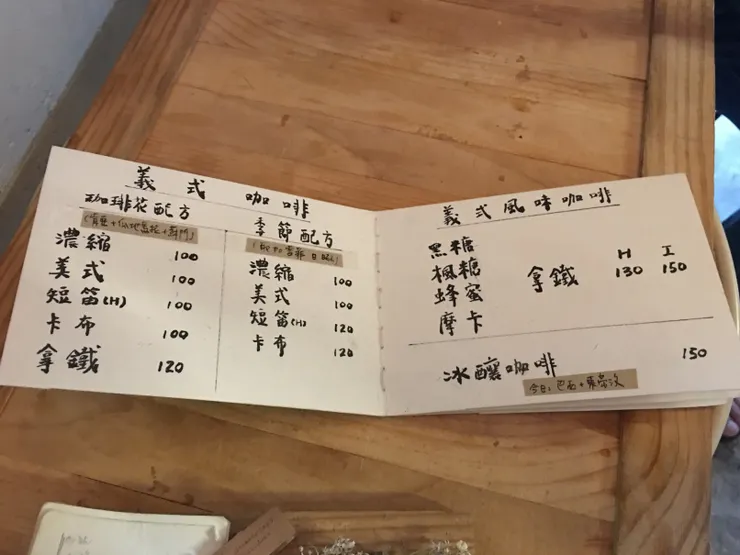 義式咖啡
珈琲花配方
濃縮 100
美式 100
短笛(H) 100
卡布 100
拿鐵 120
季節配方
濃縮 100
美式 100
短笛(H) 120
卡布 120
義式風味咖啡
黑糖
楓糖
蜂蜜
摩卡
拿鐵
H I
130 150
冰釀咖啡 150
今日:巴西+